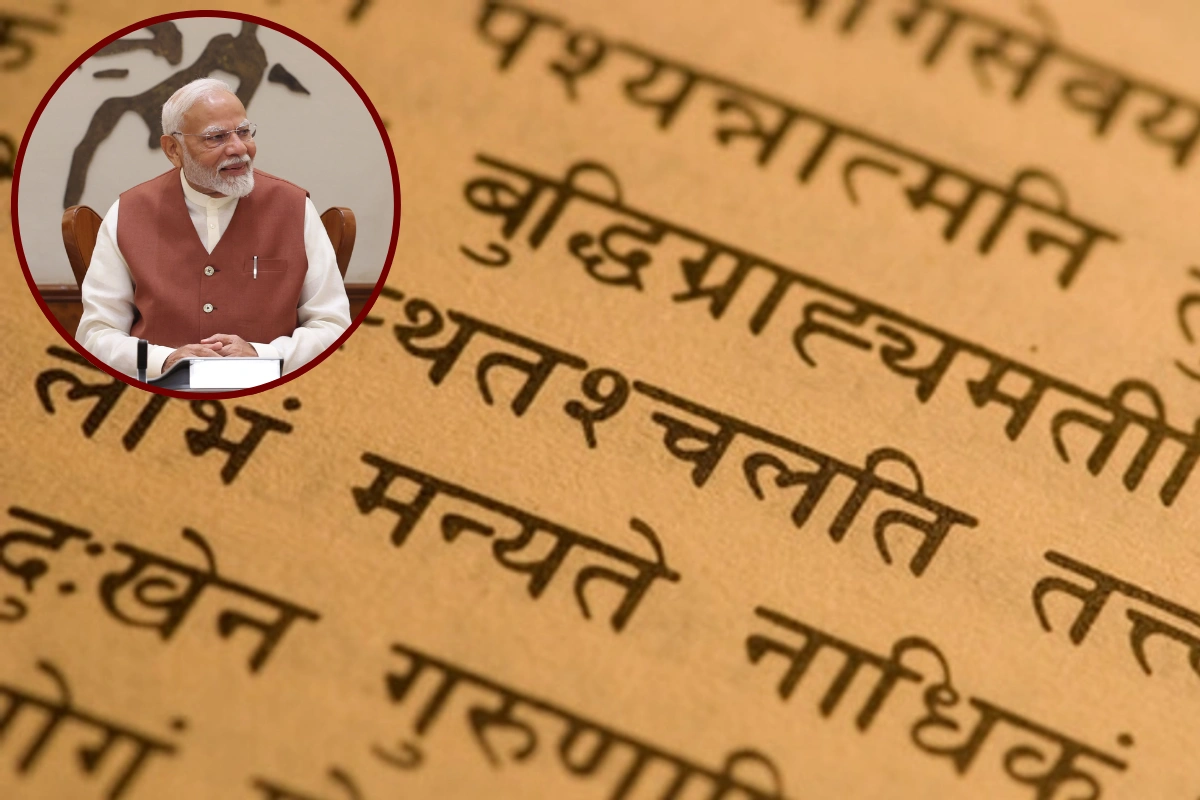 पश्यन्नात्मनि
बुद्धिग्राह्यमती
स्थितश्चलति
लाभं मन्यते नाधिकं
दुःखेन गुरुणा